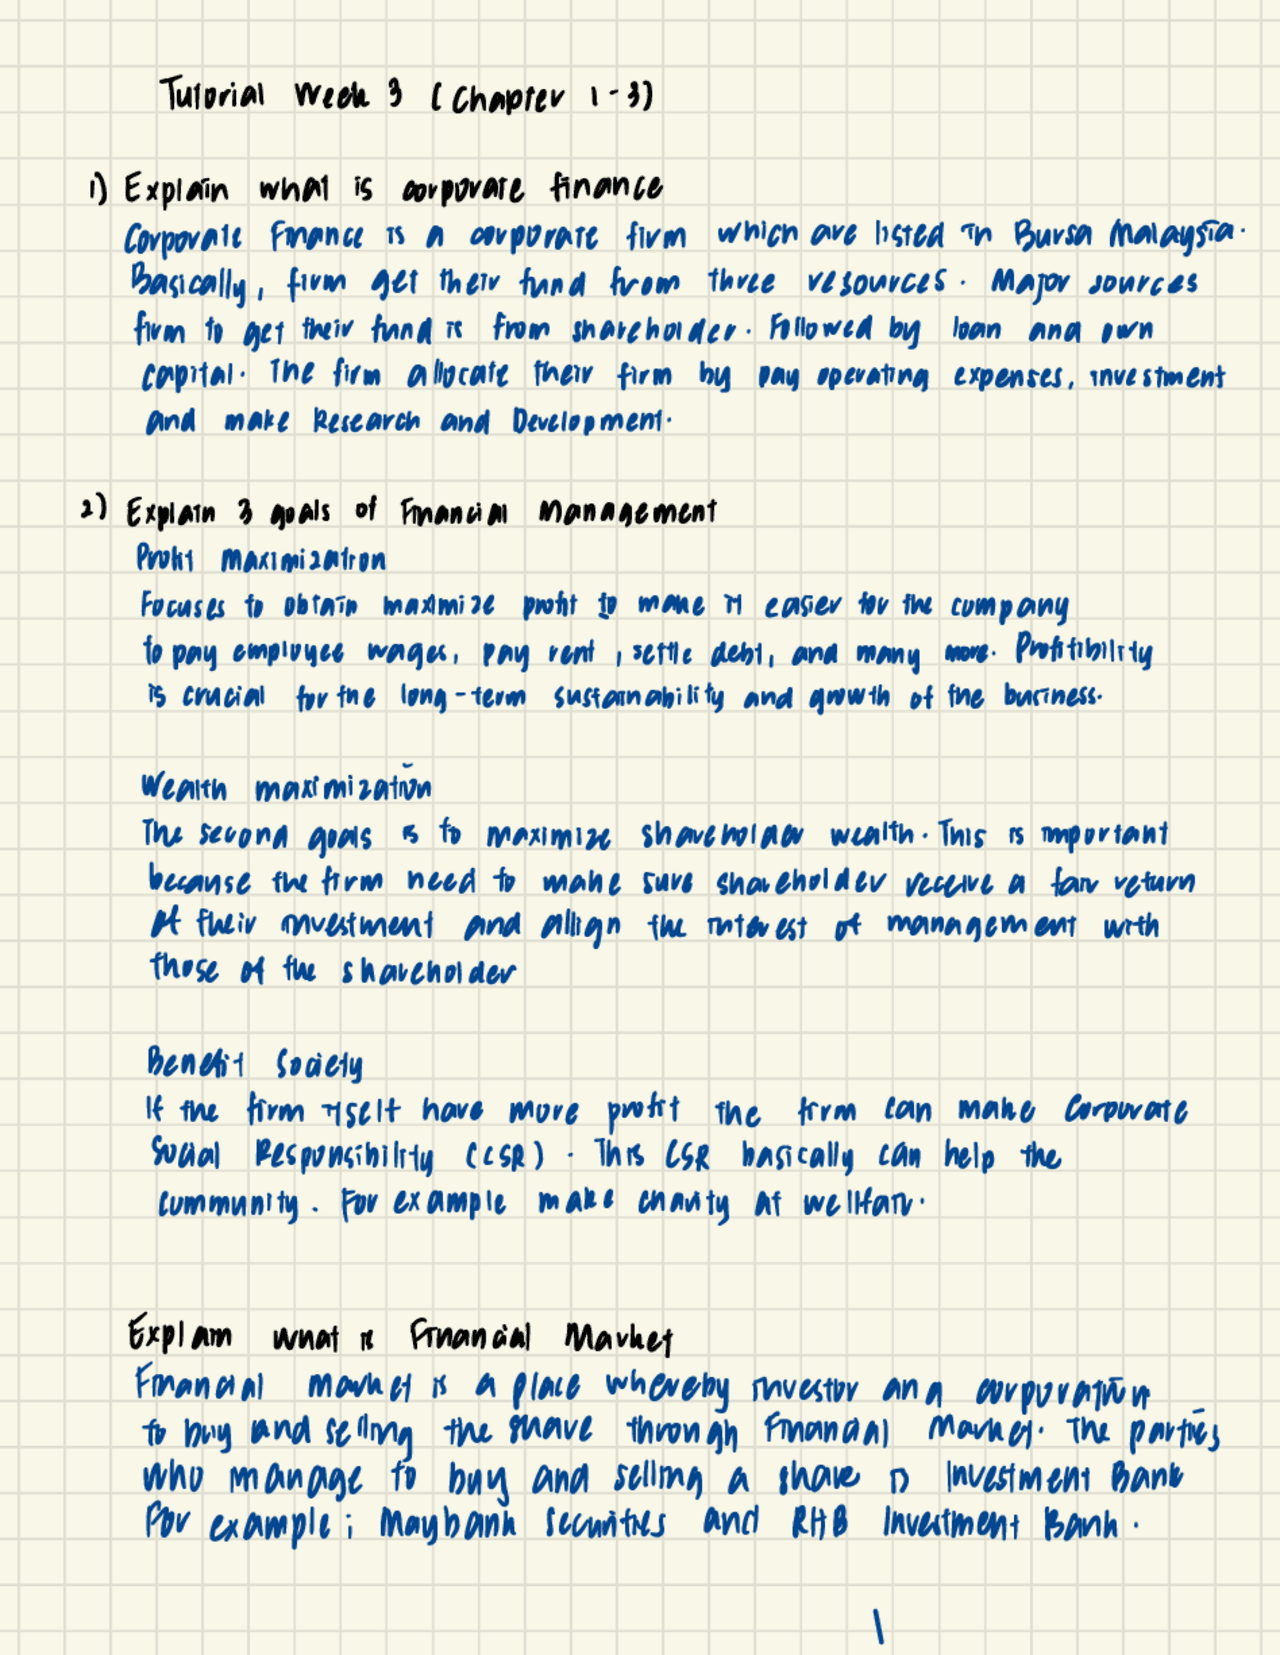 Tutorial Week 3 (Chapter 1-3)
1) Explain what is corporate finance
Corporate Finance is a corporate firm which are listed in Bursa Malaysia.
Basically, firm get their fund from three resources. Major sources
firm to get their fund is from shareholder. Followed by loan and own
capital. The firm allocate their firm by pay operating expenses, investment
and make Research and Development.
2) Explain 3 goals of Financial Management
Profit maximization
Focuses to obtain maximize profit to make it easier for the company
to pay employee wages, pay rent, settle debt, and many more. Profitibility
is crucial for the long-term sustainability and growth of the business.
Wealth maximization
The second goals is to maximize shareholder wealth. This is important
because the firm need to make sure shareholder receive a fair return
of their investment and allign the interest of management with
those of the shareholder
Benefit Society
If the firm itself have more profit the firm can make Corporate
Social Responsibility (CSR). This CSR basically can help the
community. For example make charity at wellfair.
Explain what is Financial Market
Financial market is a place whereby investor and corporation
to buy and selling the share through Financial Market. The parties
who manage to buy and selling a share is Investment Bank
For example; Maybank Securities and RHB Investment Bank.